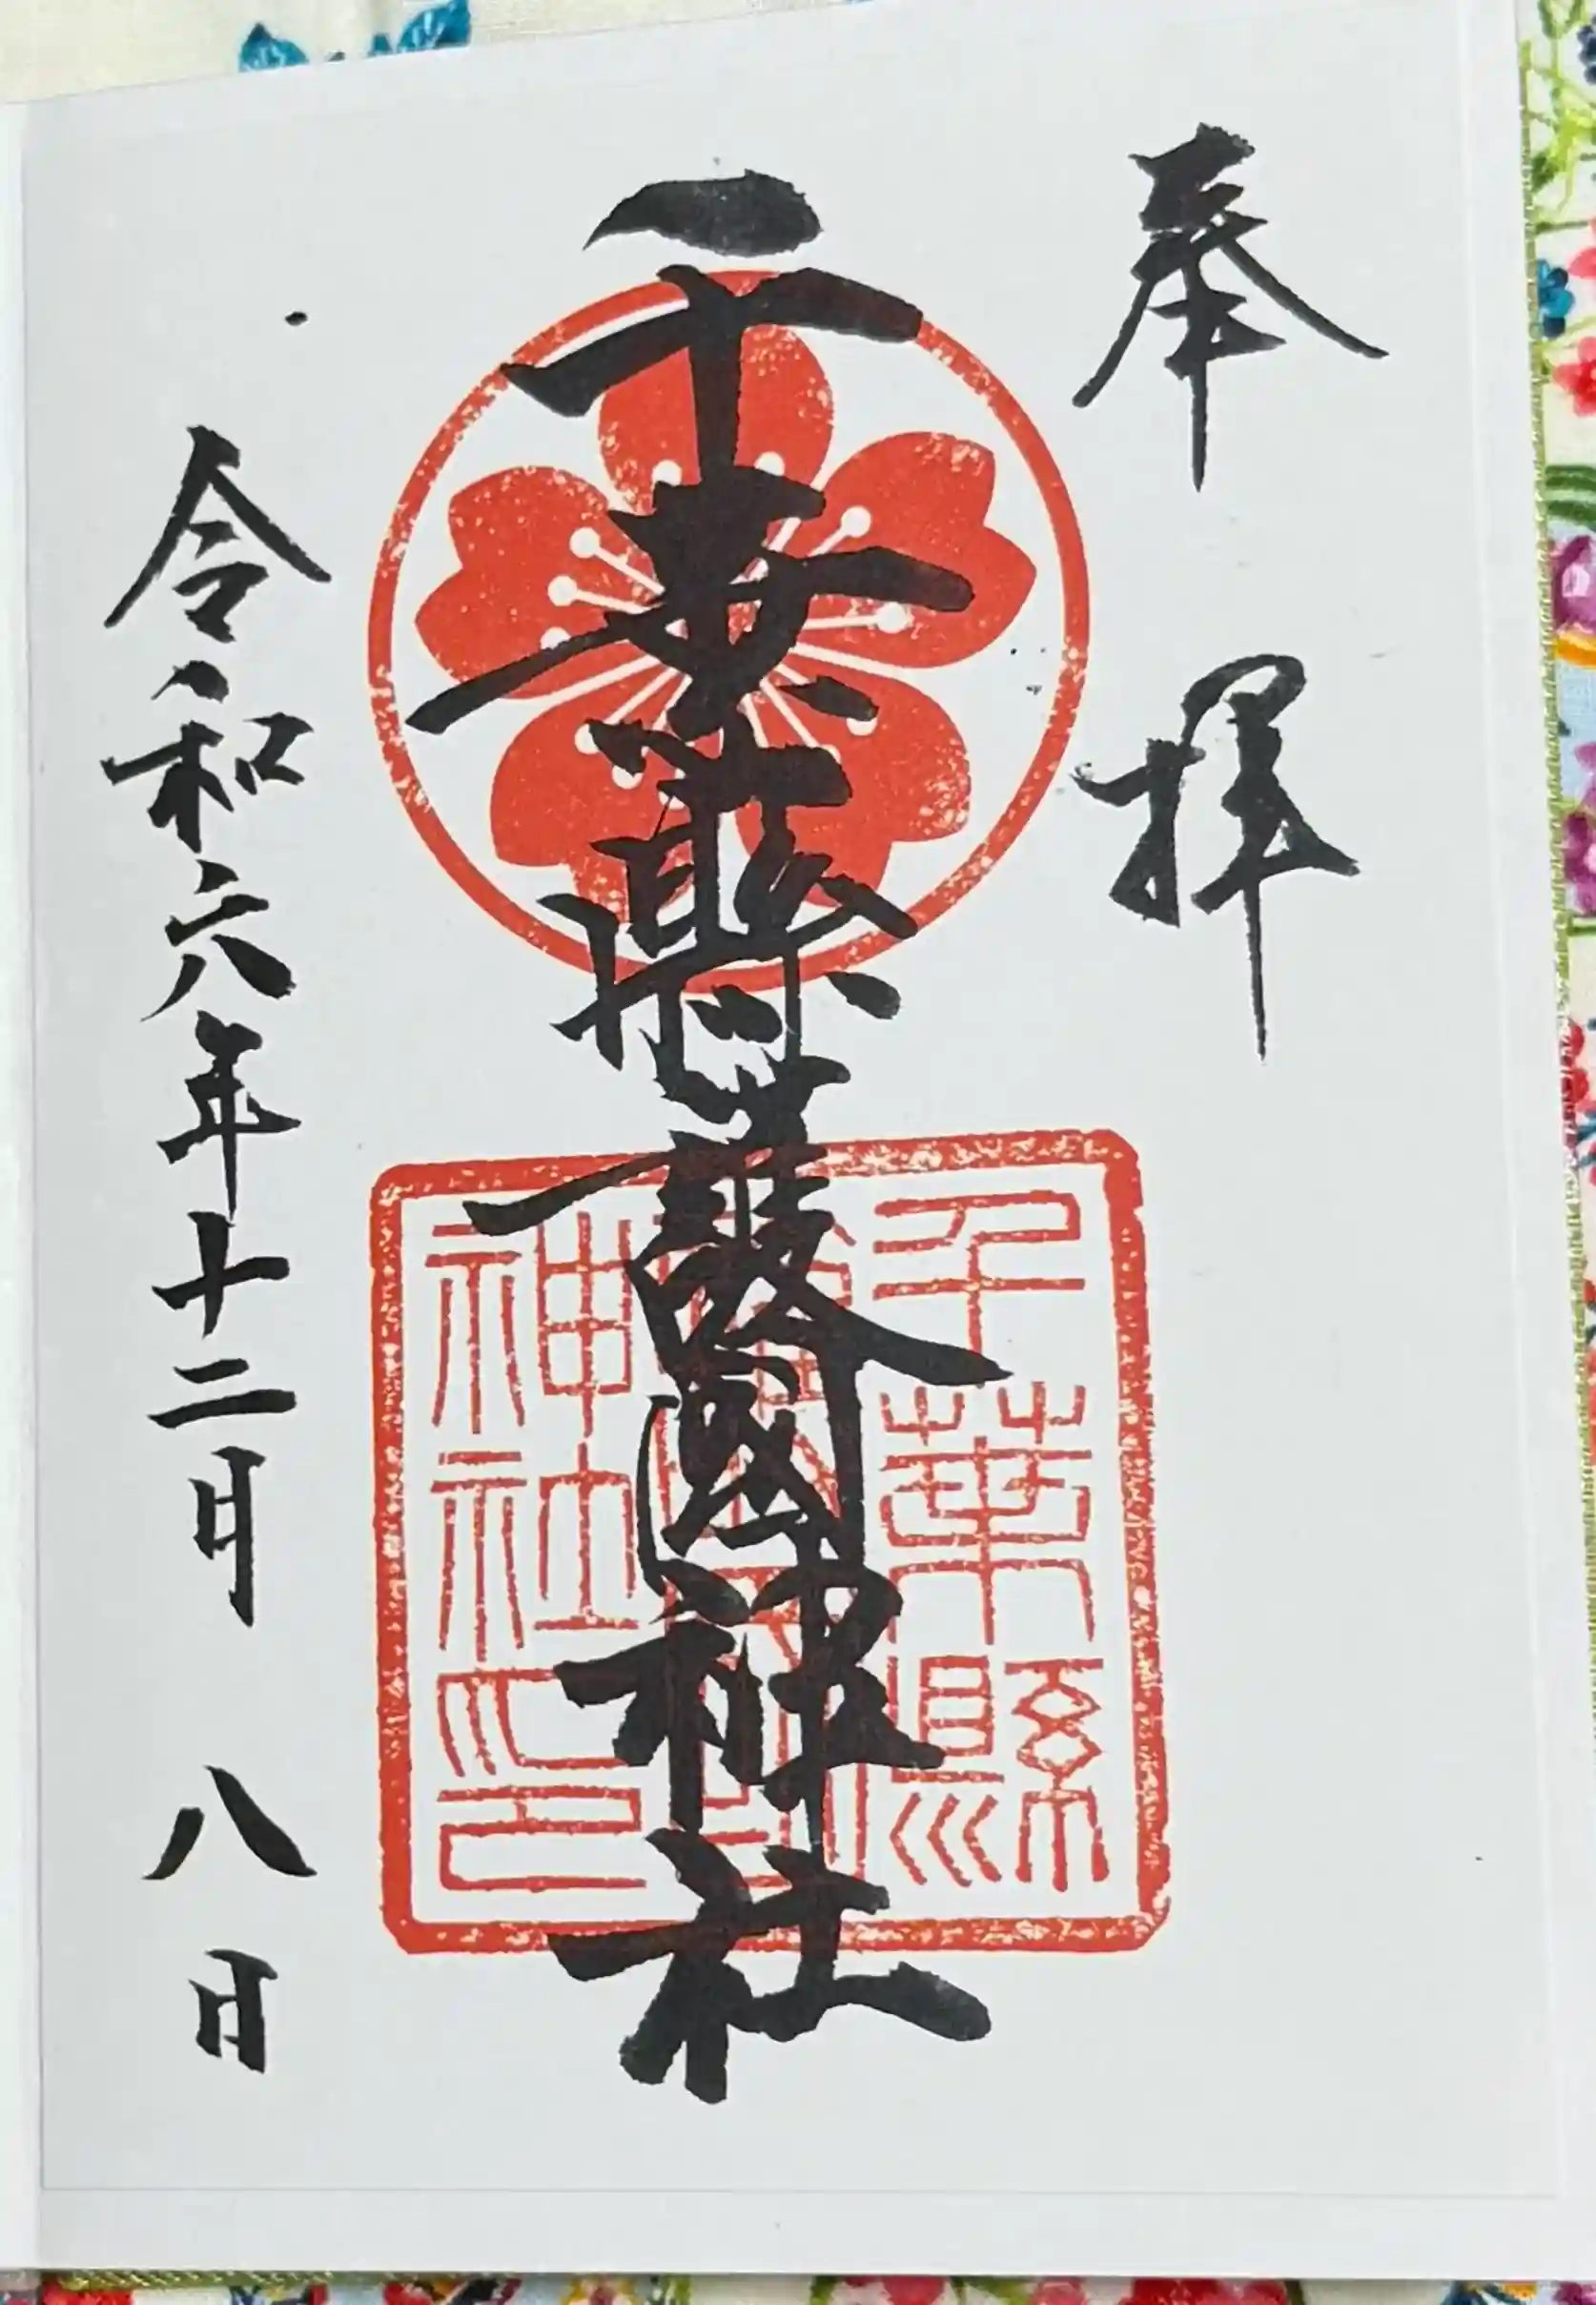 奉拝
千葉縣護國神社
千葉縣
護國
神社印
令和六年十二月八日